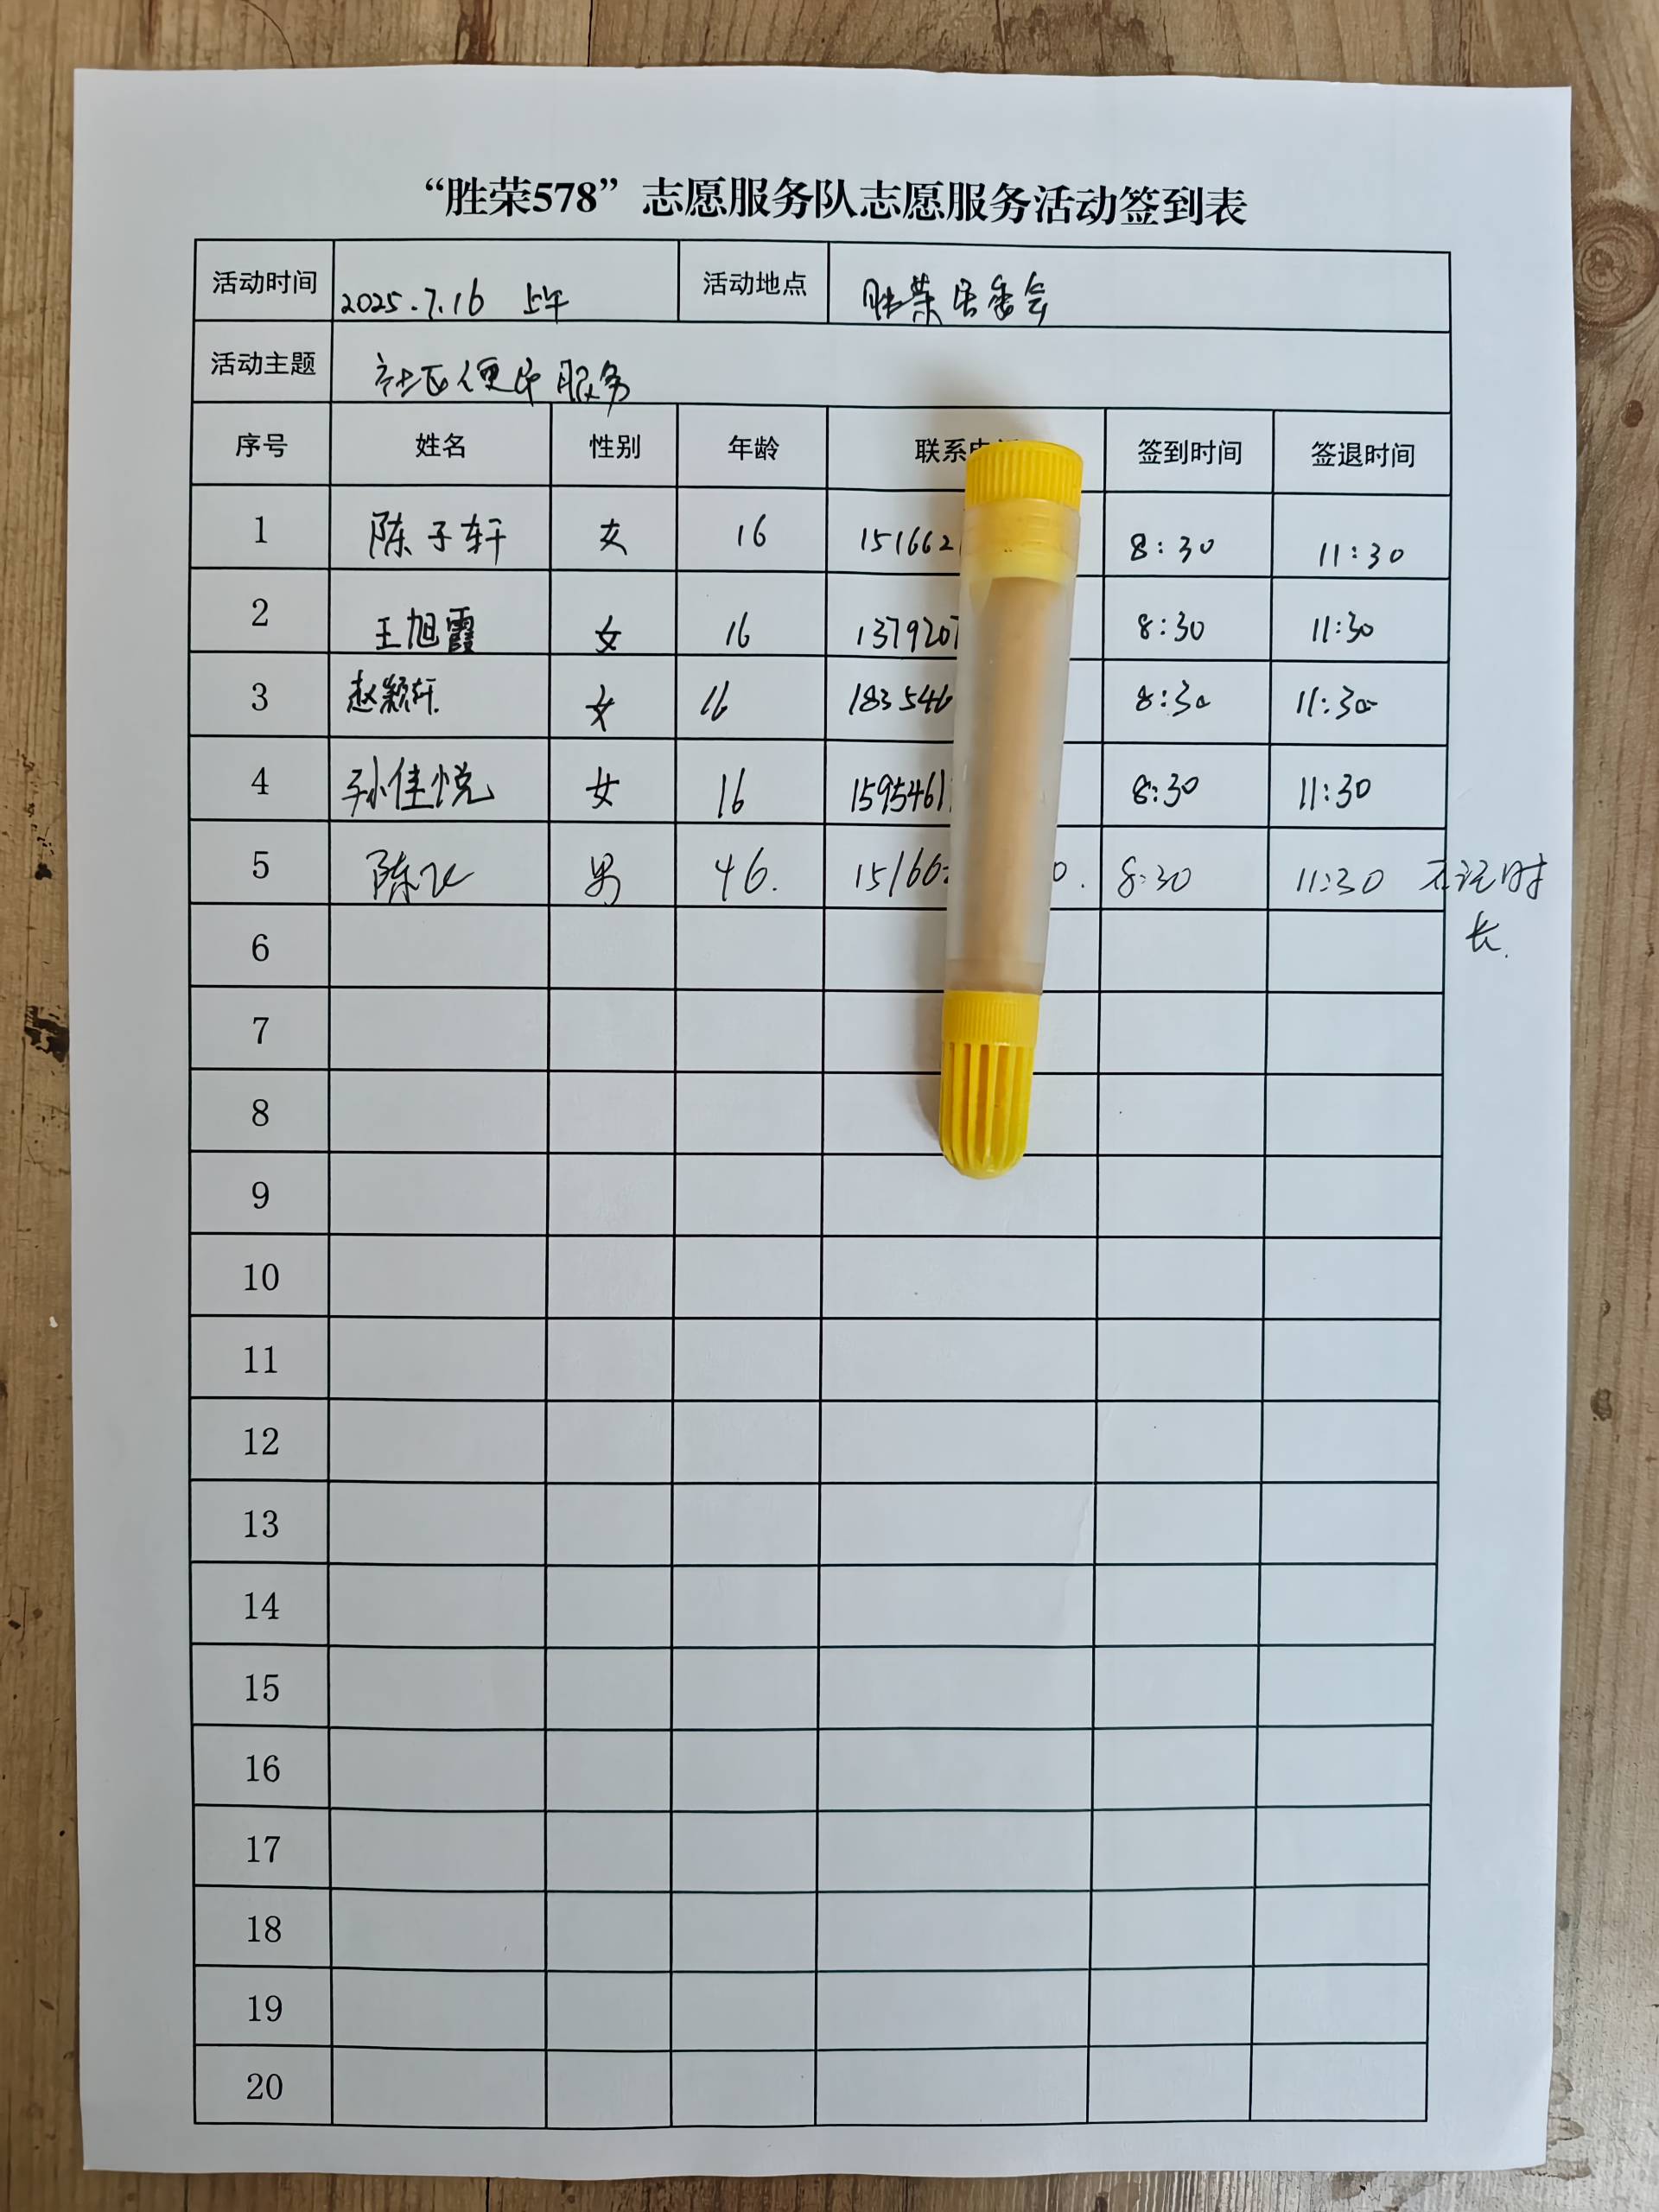 “胜荣578”志愿服务队志愿服务活动签到表
活动时间 2025.7.16 上午 活动地点 胜荣居委会
活动主题 社区便民服务
序号 姓名 性别 年龄 联系电 签到时间 签退时间
1 陈子轩 女 16 151662 8:30 11:30
2 王旭霞 女 16 1379207 8:30 11:30
3 赵颖轩 女 16 183546 8:30 11:30
4 孙佳悦 女 16 1595461 8:30 11:30
5 陈飞 男 46. 15166 0. 8:30 11:30 不记时
长.
6
7
8
9
10
11
12
13
14
15
16
17
18
19
20